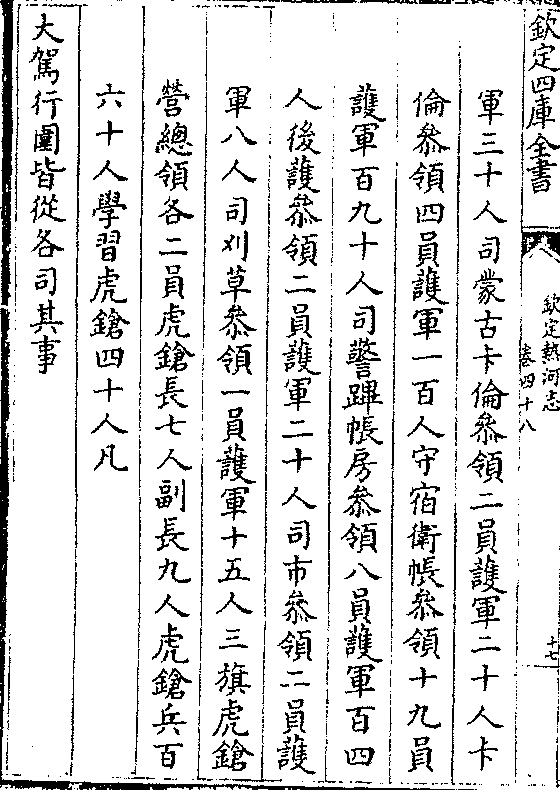 欽定四庫全書
欽定熱河志
卷四十八
十七
軍三十人司蒙古卡倫叅領二員護軍二十人卡
倫叅領四員護軍一百人守宿衛帳叅領十九員
護軍百九十人司警蹕帳房叅領八員護軍百四
人後護叅領二員護軍二十人司市叅領二員護
軍八人司刈草叅領一員護軍十五人三旗虎鎗
營總領各二員虎鎗長七人副長九人虎鎗兵百
六十人學習虎鎗四十人凡
大駕行圍皆從各司其事